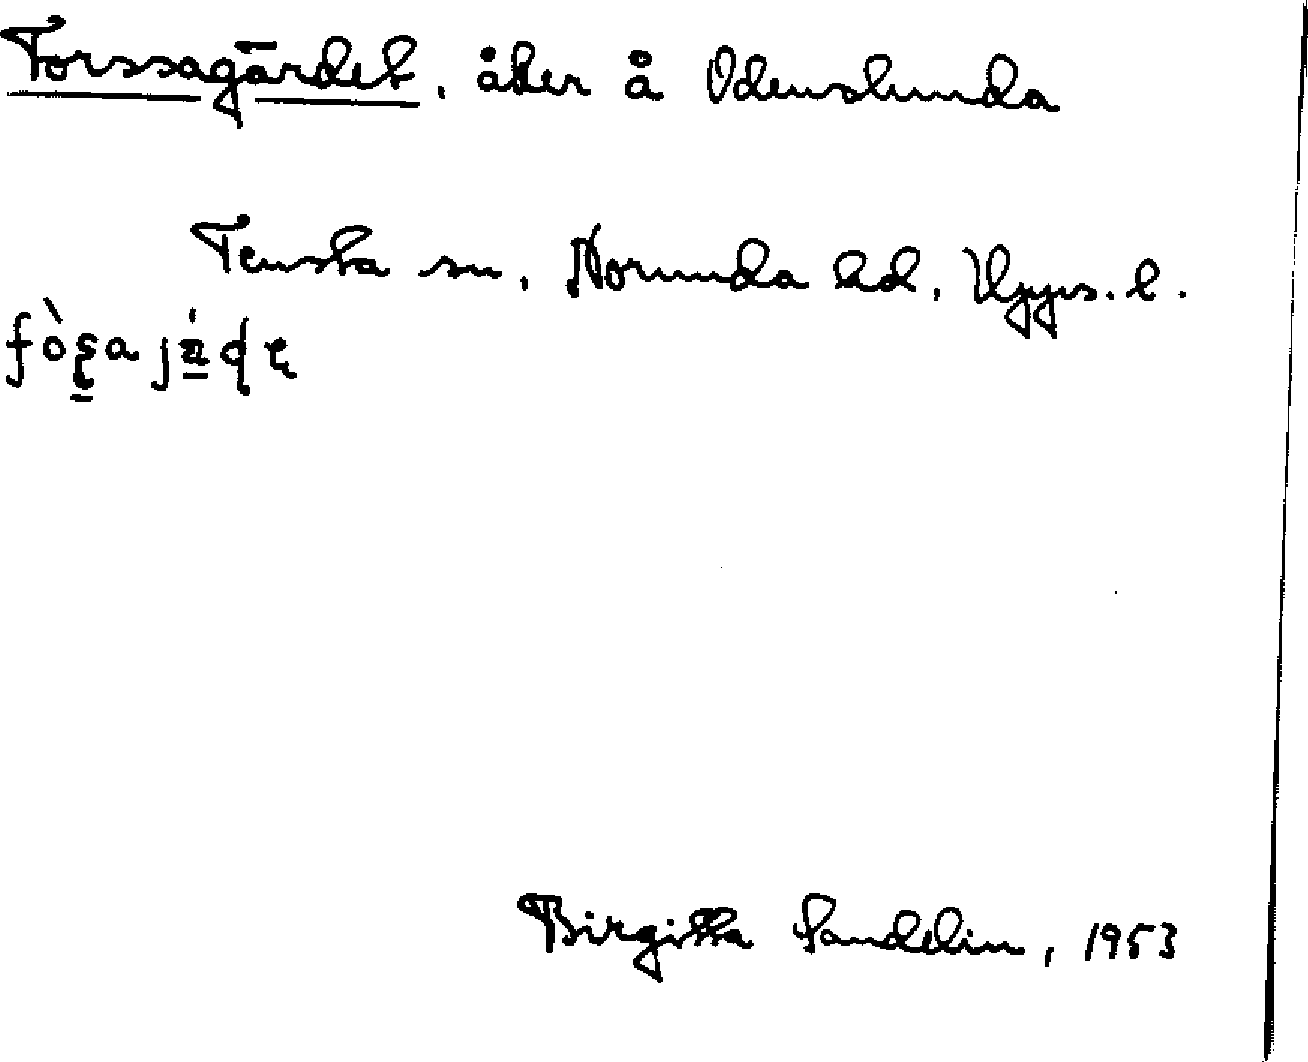 Forssagärdet, åker å Odenslunda
Tensta sn, Norunda hd, Upps. l.
Birgitta Sandelin, 1953